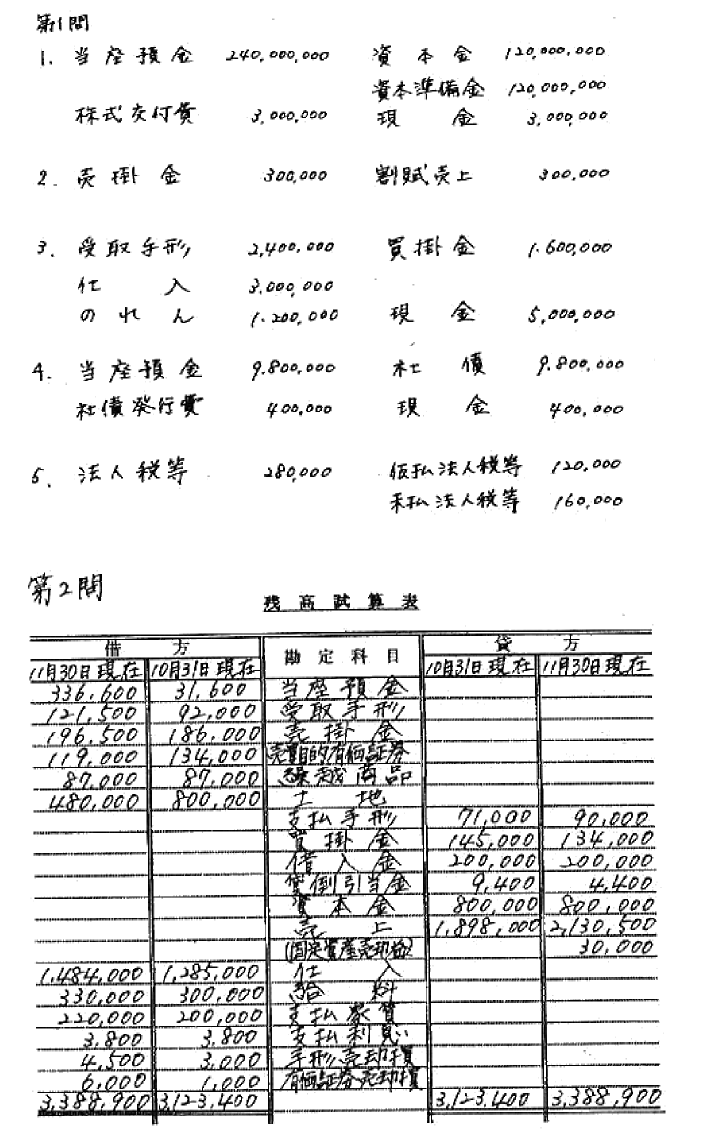 第1問
1. 当座預金 240,000,000 資本金 120,000,000
資本準備金 120,000,000
株式交付費 3,000,000 現金 3,000,000
2. 売掛金 300,000 割賦売上 300,000
3. 受取手形 2,400,000 買掛金 1.600,000
仕入 3,000,000
のれん 1.200,000 現金 5,000,000
4. 当座預金 9.800,000 社債 9.800,000
社債発行費 400,000 現金 400,000
5. 法人税等 280,000 仮払法人税等 120,000
未払法人税等 160,000
第2問
残高試算表
借方 勘定科目 貸方
11月30日現在 10月31日現在 10月31日現在 11月30日現在
336,600 31,600 当座預金
121,500 92,000 受取手形
196,500 186,000 売掛金
119,000 134,000 売買目的有価証券
87,000 87,000 繰越商品
480,000 800,000 土地
支払手形 71,000 90,000
買掛金 145,000 134,000
借入金 200,000 200,000
貸倒引当金 9,400 4,400
資本金 800,000 800,000
売上 1,898,000 2,130,500
(固定資産売却益) 30,000
1,484,000 1,285,000 仕入
330,000 300,000 給料
220,000 200,000 支払家賃
3,800 3,800 支払利息
4,500 3,000 手形売却損
6,000 1,000 有価証券売却損
3,388,900 3,123,400 3,123,400 3,388,900